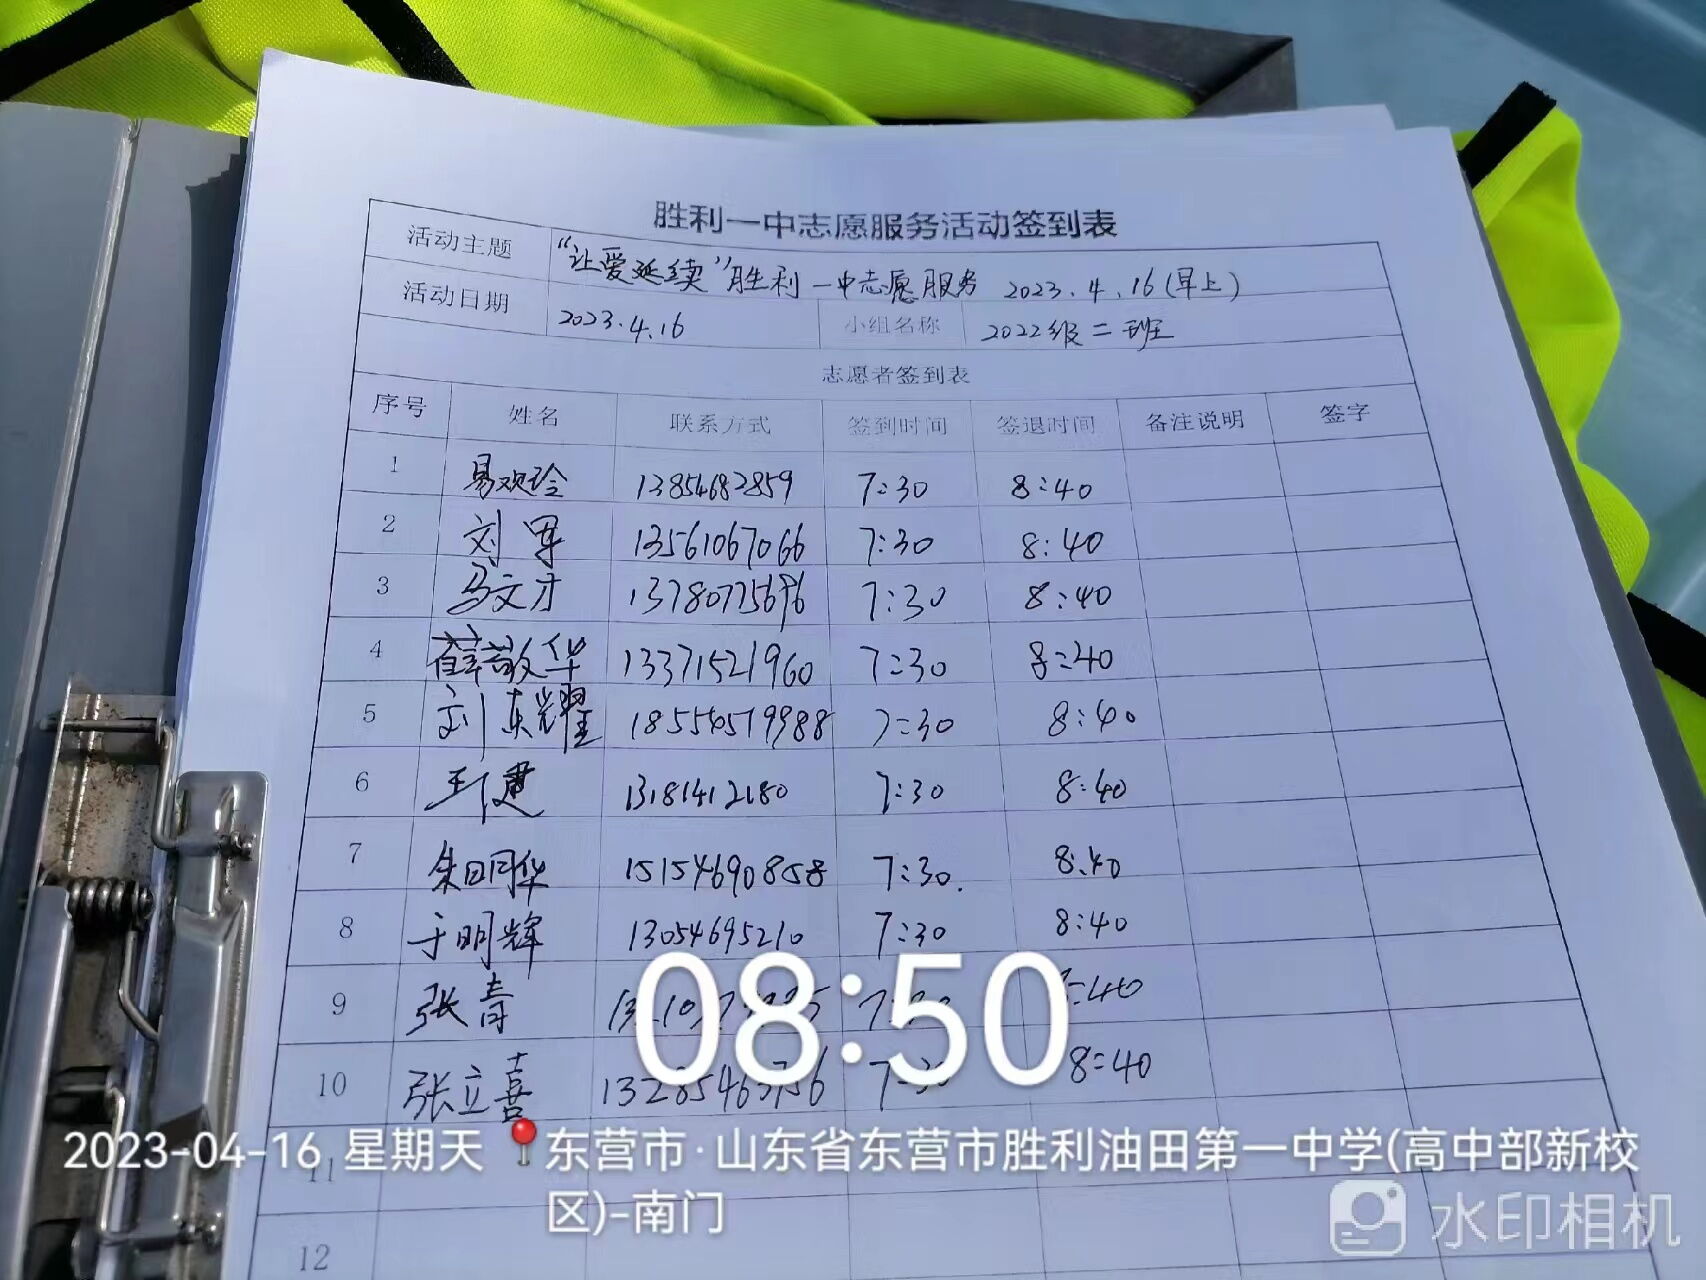 胜利一中志愿服务活动签到表
活动主题 “让爱延续”胜利一中志愿服务 2023.4.16(早上)
活动日期 2023.4.16 小组名称 2022级二班
志愿者签到表
序号 姓名 联系方式 签到时间 签退时间 备注说明 签字
1 易欢玲 13854682859 7:30 8:40
2 刘军 13561067066 7:30 8:40
3 马文才 13780775696 7:30 8:40
4 薛敬华 13371521960 7:30 8:40
5 刘英耀 18554519988 7:30 8:40
6 王建 13181412180 7:30 8:40
7 朱田同华 15154690858 7:30. 8:40
8 于明辉 13054695210 7:30 8:40
9 张青 :40
10 张立喜 8:40
08:50
2023-04-16 星期天 东营市·山东省东营市胜利油田第一中学(高中部新校
区)-南门
11
12
水印相机